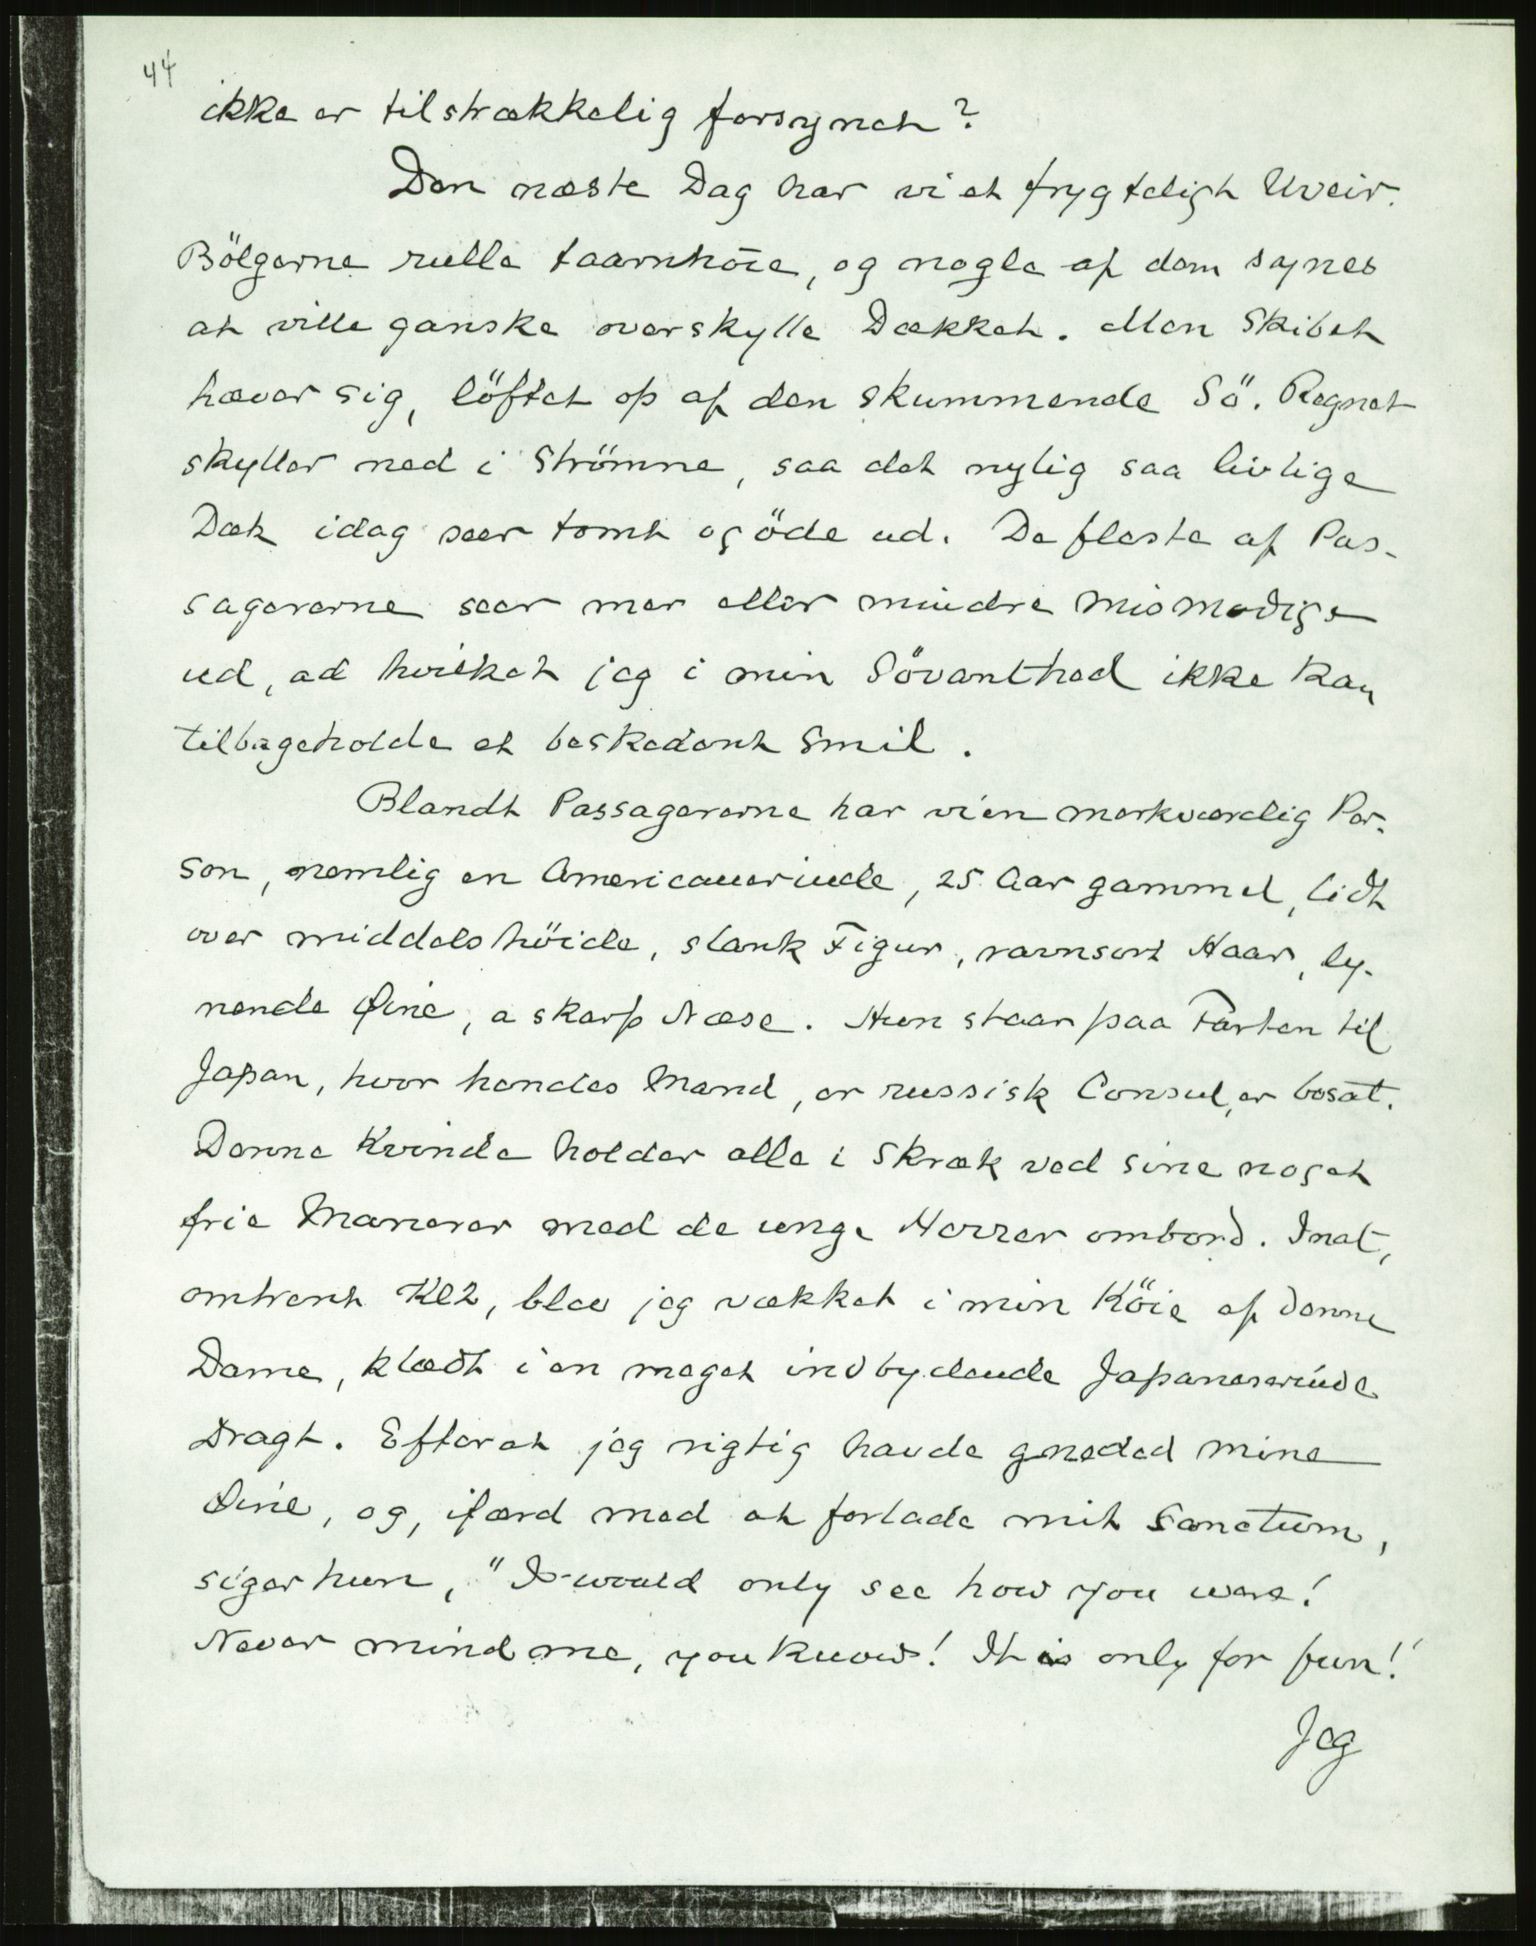 44
ikke er tilstrækkelig forsynet?
Den næste Dag har vi et frygteligt Uveir.
Bölgerne rulle taarnhöie, og nogle af dem synes
at ville ganske overskylle Dækket. Men Skibet
hæver sig, löftet op af den skummende Sö. Regnet
skyller ned i Strömme, saa det nylig saa livlige
Dæk idag seer tomt og öde ud. De fleste af Pas-
sagererne seer mer eller mindre mismodige
ud, ad hvilket jeg i min Sövanthed ikke kan
tilbageholde et beskedent Smil.
Blandt Passagererne har vi en merkværdig Per-
son, nemlig en Americanerinde, 25 Aar gammel, lidt
over middelshöide, slank Figur, ravnsort Haar, ly-
nende Øine, a skarp Næse. Hun staar paa Farten til
Japan, hvor hendes Mand, er russisk Consul, er bosat.
Denne Kvinde holder alle i Skræk ved sine noget
frie Manerer med de unge Herrer ombord. Inat,
omtrent Kl 2, blev jeg vækket i min Köie af denne
Dame, klædt i en meget indbydende Japaneserinde
Dragt. Efterat jeg rigtig havde gneded mine
Øine, og, ifærd med at forlade mit Sanctum,
siger hun, "I would only see how you were!
Never mind me, you know! It is only for fun!"
Jeg